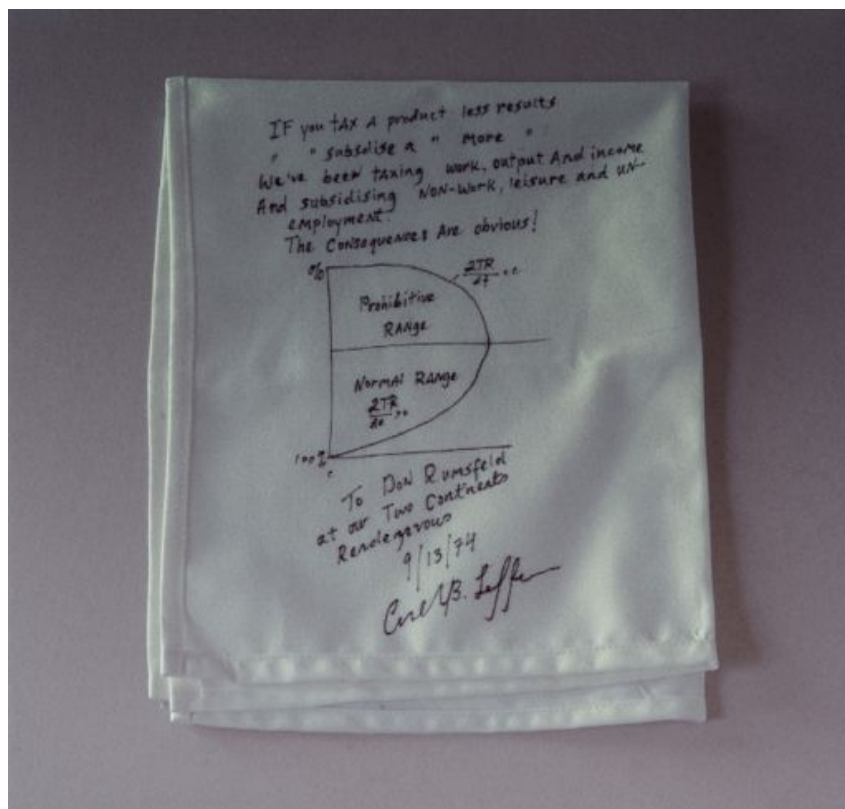 IF you tAx A product less results
" " subsidise a " more " .
We've been taxing work, output And income
And subsidising NON-work, leisure and UN-
employment.
The Consequences Are obvious!
%
Prohibitive
RANge
Normal RANge
100%
To Don Rumsfeld
at our Two Continents
Rendezvous
9/13/74
B. Laffer